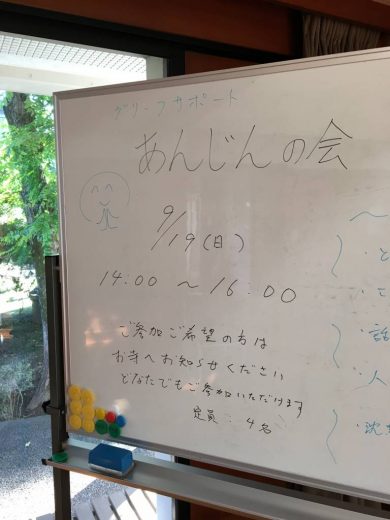 グリーフサポート
あんじんの会
9/19(日)
14:00 〜 16:00
ご参加ご希望の方は
お寺へお知らせください
どなたでもご参加いただけます
定員：4名
〜
・と
・こ
・話
・人
・沈